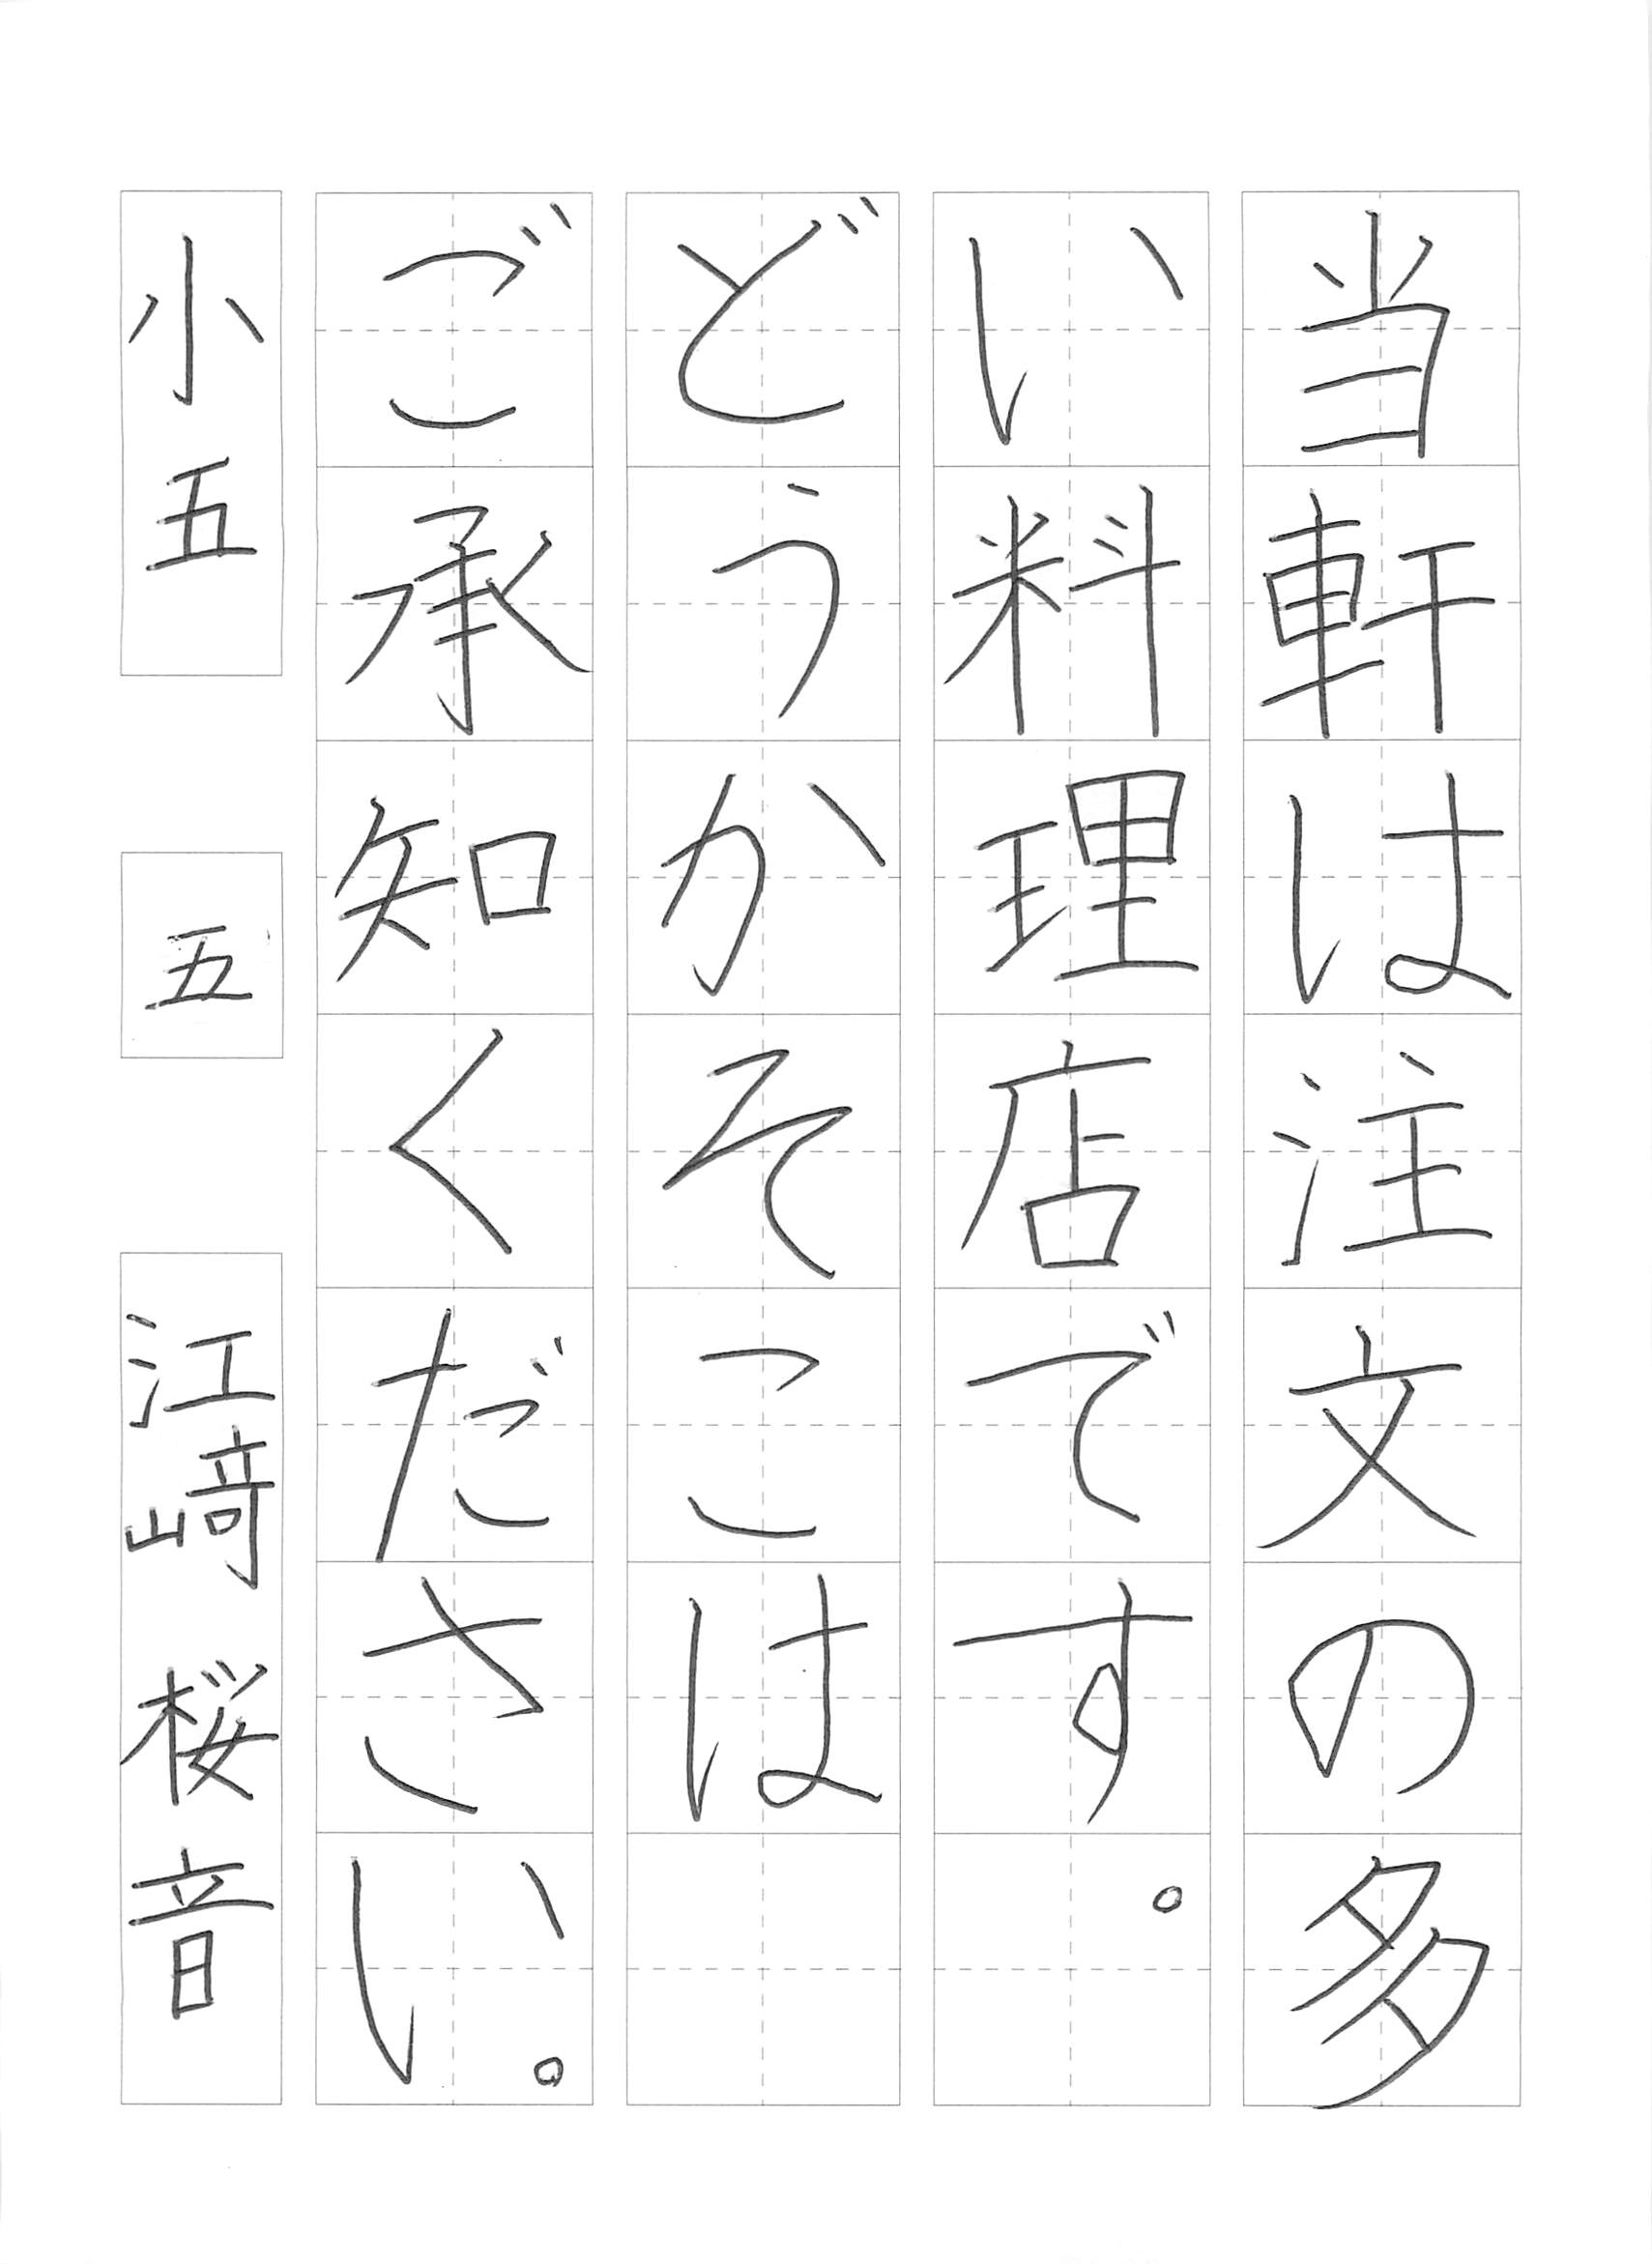 当軒は注文の多
い料理店です。
どうかそこは
ご承知ください。
小五 五 江﨑桜音